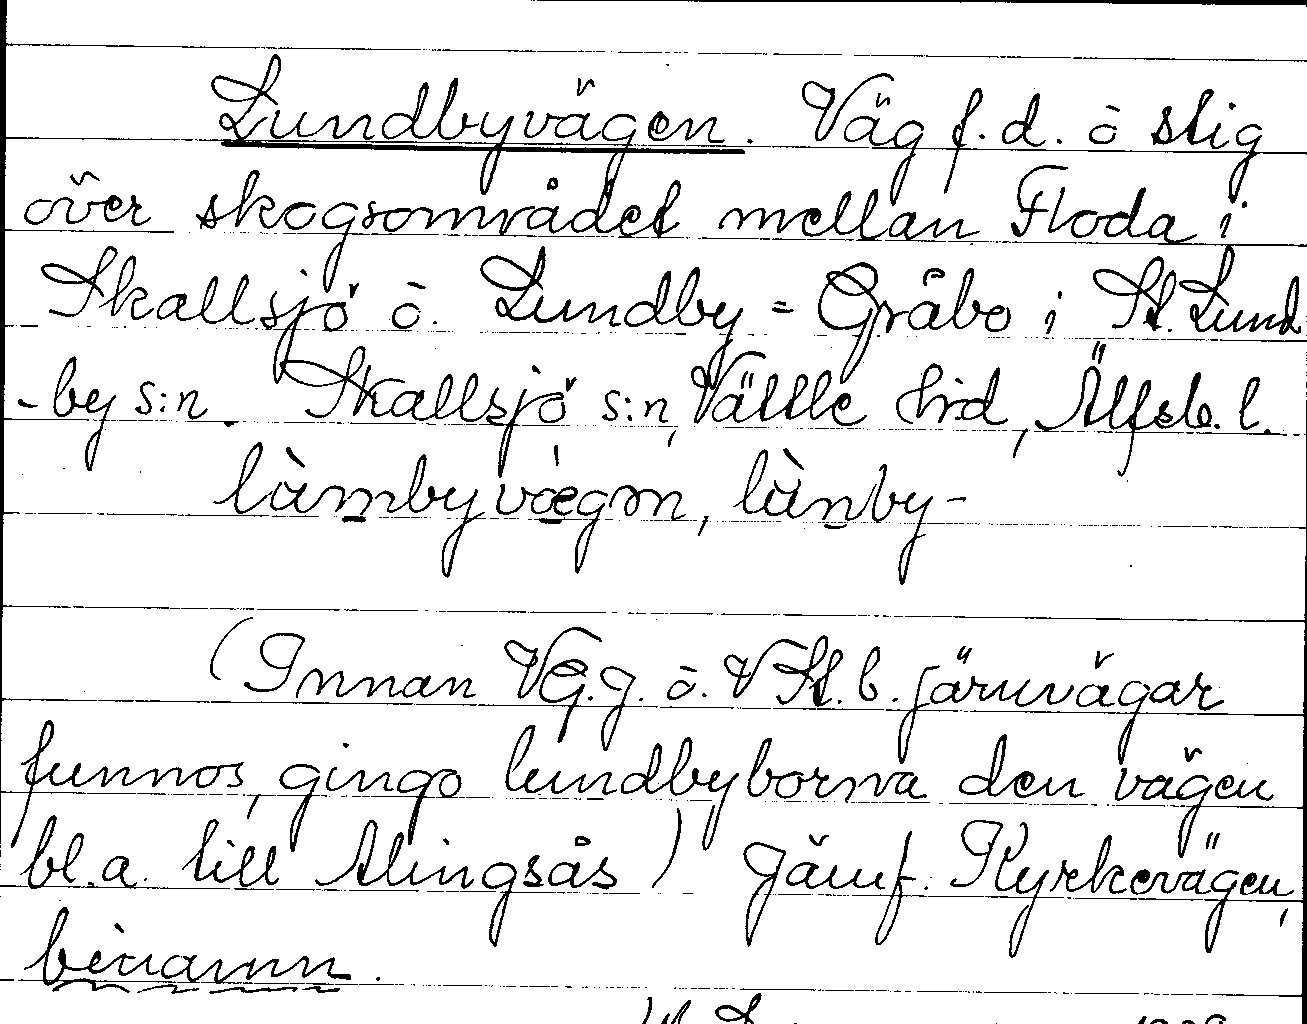 Lundbyvägen. Väg f.d. ō stig
över skogsområdet mellan Floda i
Skallsjö ō. Lundby = Gråbo i St. Lund
-by s:n. Skallsjö s:n, Vättle hrd, Älfsb. l.
làmbyvægɷn, lànby-
(Innan VG.g. ō. V St. b. järnvägar
funnos, gingo lundbyborna den vägen
bl.a. till Alingsås) Jämf. Kyrkevägen,
binamn.